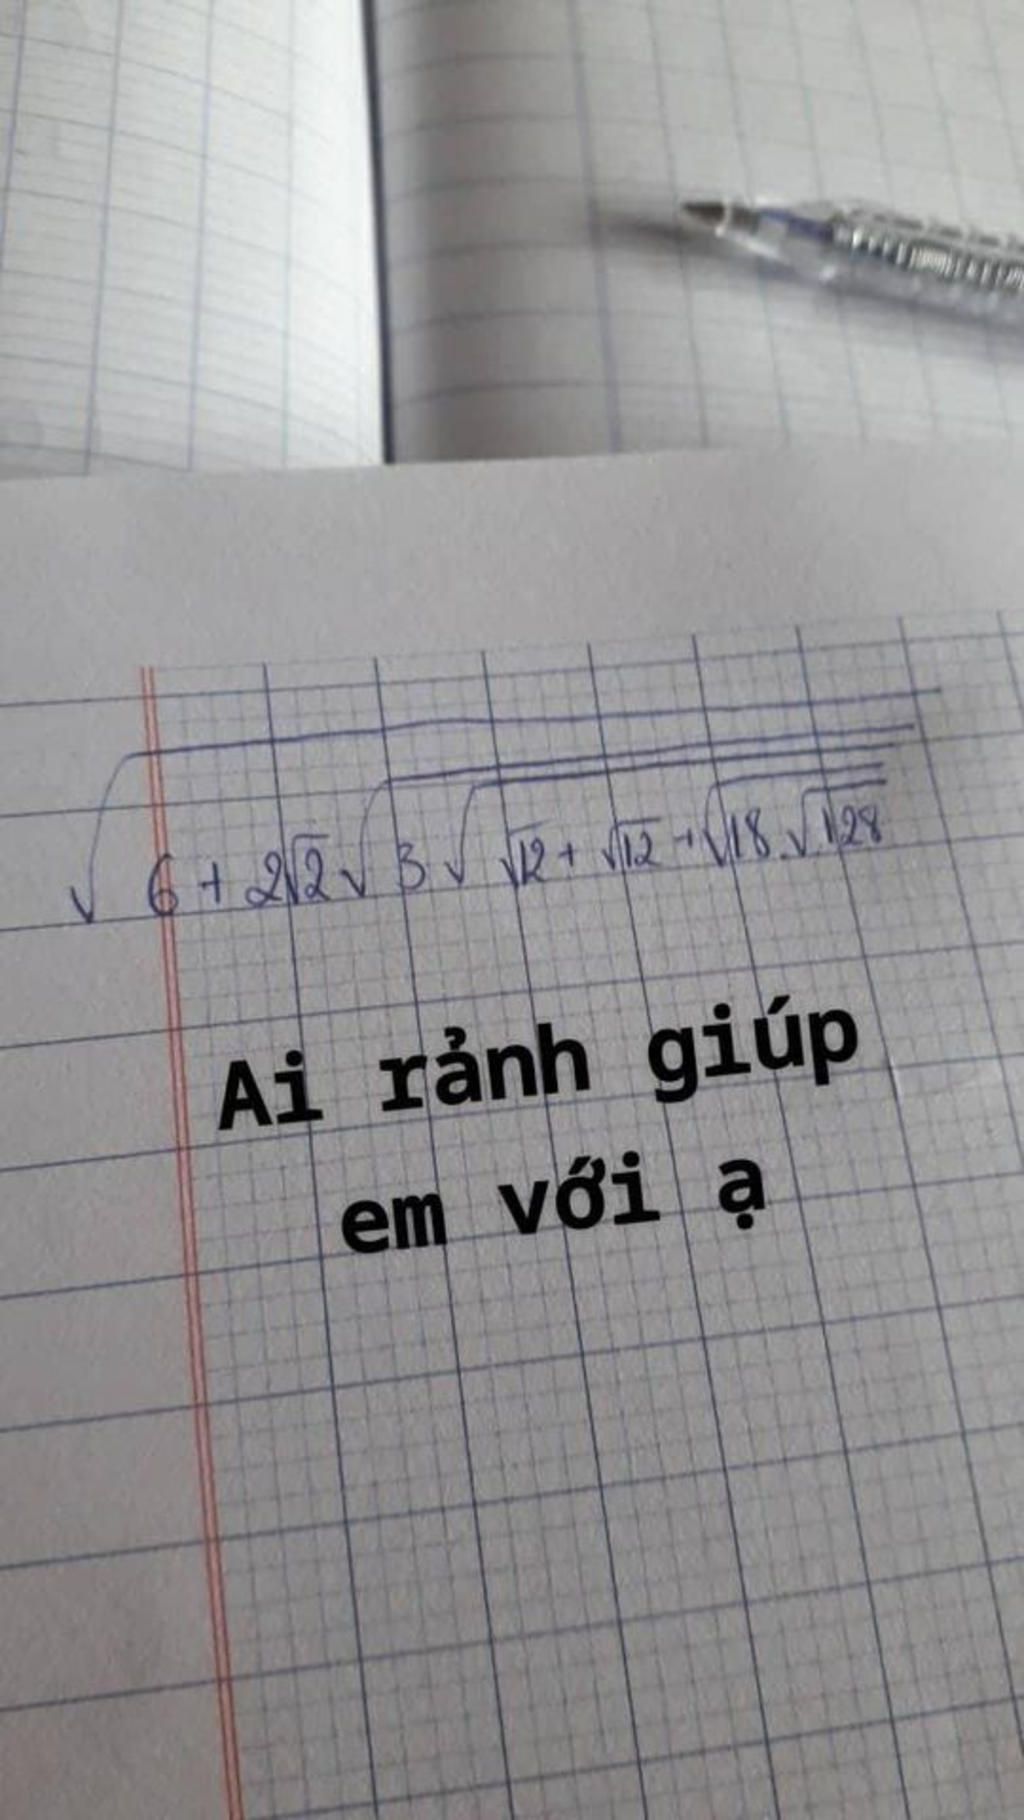 √(6 + 2√2√(3√(√12 + √12 + √(18.√128))))
Ai rảnh giúp
em với ạ